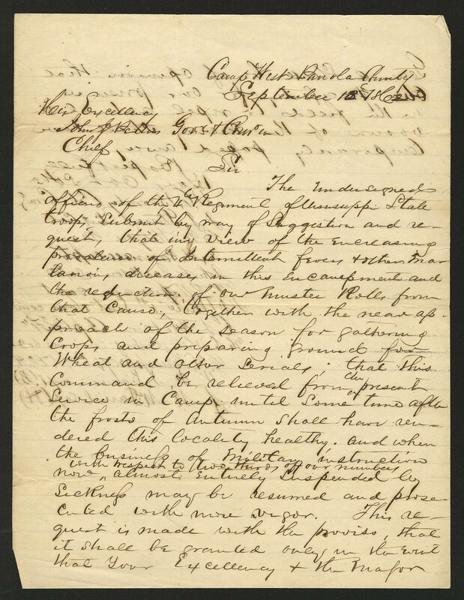 Camp West Panola County
September 13 1862
His Excellency
John J Pettus Gov & Com in
Chief
Sir
The undersigned
officers of the Regiment of Mississippi State
troops, submit by way of Suggestion and re-
quest, that in view of the encreasing
prevalence of Intermittent fevers & other
diseases in this Encampment and
the reduction of our Muster Rolls from
that Cause, together with the near ap-
proach of the Season for gathering
Crops and preparing ground for
Wheat and other Cereals; that this
Command be relieved from present
Service in Camp until Some time after
the frosts of Autumn Shall have ren-
dered this locality healthy. and when
the business of Military instruction
with respect to two thirds of our numbers
now almost Entirely Suspended by
Sickness may be resumed and prose-
cuted with more vigor. This re-
quest is made with the proviso, that
it Shall be granted only in the event
that Your Excellency & the Major